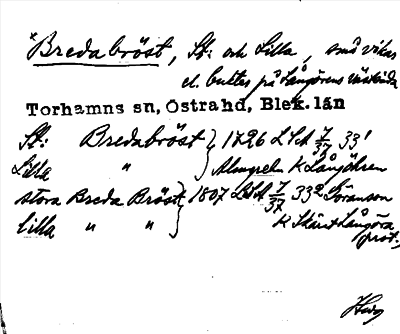 *Bredabröst, St: och Lilla, små vikar
el. bukter på Långörens västsida
Torhamns sn, Östrahd, Blek. län
St: Bredabröst } 1796 LSA I/37 33¹
Lilla " Almgren K Långöhren
stora Breda Bröst } 1807 LSA I/37 33² Göransson
lilla " " K Skärut Långöra